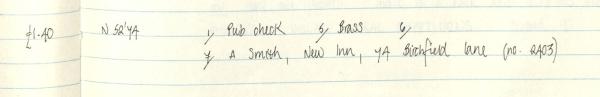 £1.40 N 52'YA 1, Pub check 5, Brass 6,
7, A Smith, New Inn, YA Birchfield Lane (no. 2403)